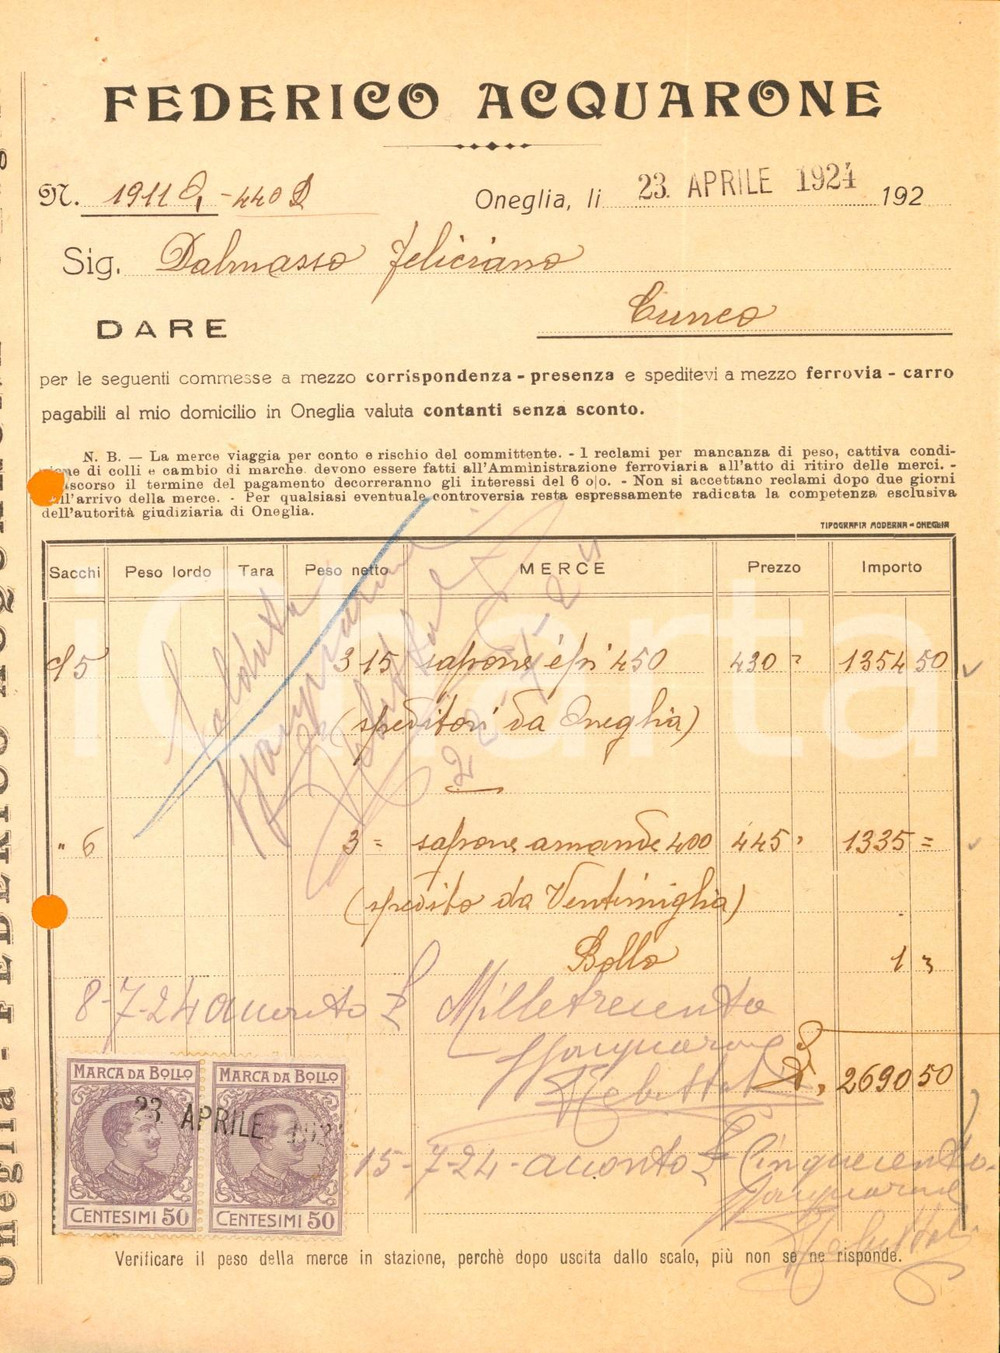 FEDERICO ACQUARONE
N. 1911 Q - 440 D
Oneglia, li 23 APRILE 1924 192
Sig. Dalmasso Feliciano
Cuneo
DARE
per le seguenti commesse a mezzo corrispondenza - presenza e speditevi a mezzo ferrovia - carro
pagabili al mio domicilio in Oneglia valuta contanti senza sconto.
N. B. — La merce viaggia per conto e rischio del committente. - I reclami per mancanza di peso, cattiva condi-
di colli e cambio di marche devono essere fatti all'Amministrazione ferroviaria all'atto di ritiro delle merci. -
il termine del pagamento decorreranno gli interessi del 6 o|o. - Non si accettano reclami dopo due giorni
all'arrivo della merce. - Per qualsiasi eventuale controversia resta espressamente radicata la competenza esclusiva
dell'autorità giudiziaria di Oneglia.
TIPOGRAFIA MODERNA - ONEGLIA
Sacchi Peso lordo Tara Peso netto MERCE Prezzo Importo
3 15 sapone 450 430 " 1354 50
(spediton da Oneglia)
" 6 3 = sapone amande 400 445 " 1335 =
(spedito da Ventimiglia)
Bollo 1 "
Saldata
8-7-24 acconto £ Milletrecento
£. 2690 50
15-7-24 - acconto £ Cinquecento-
MARCA DA BOLLO MARCA DA BOLLO
23 APRILE 192
CENTESIMI 50 CENTESIMI 50
Verificare il peso della merce in stazione, perchè dopo uscita dallo scalo, più non se ne risponde.
Oneglia - FEDERICO ACQUARONE
iCharta